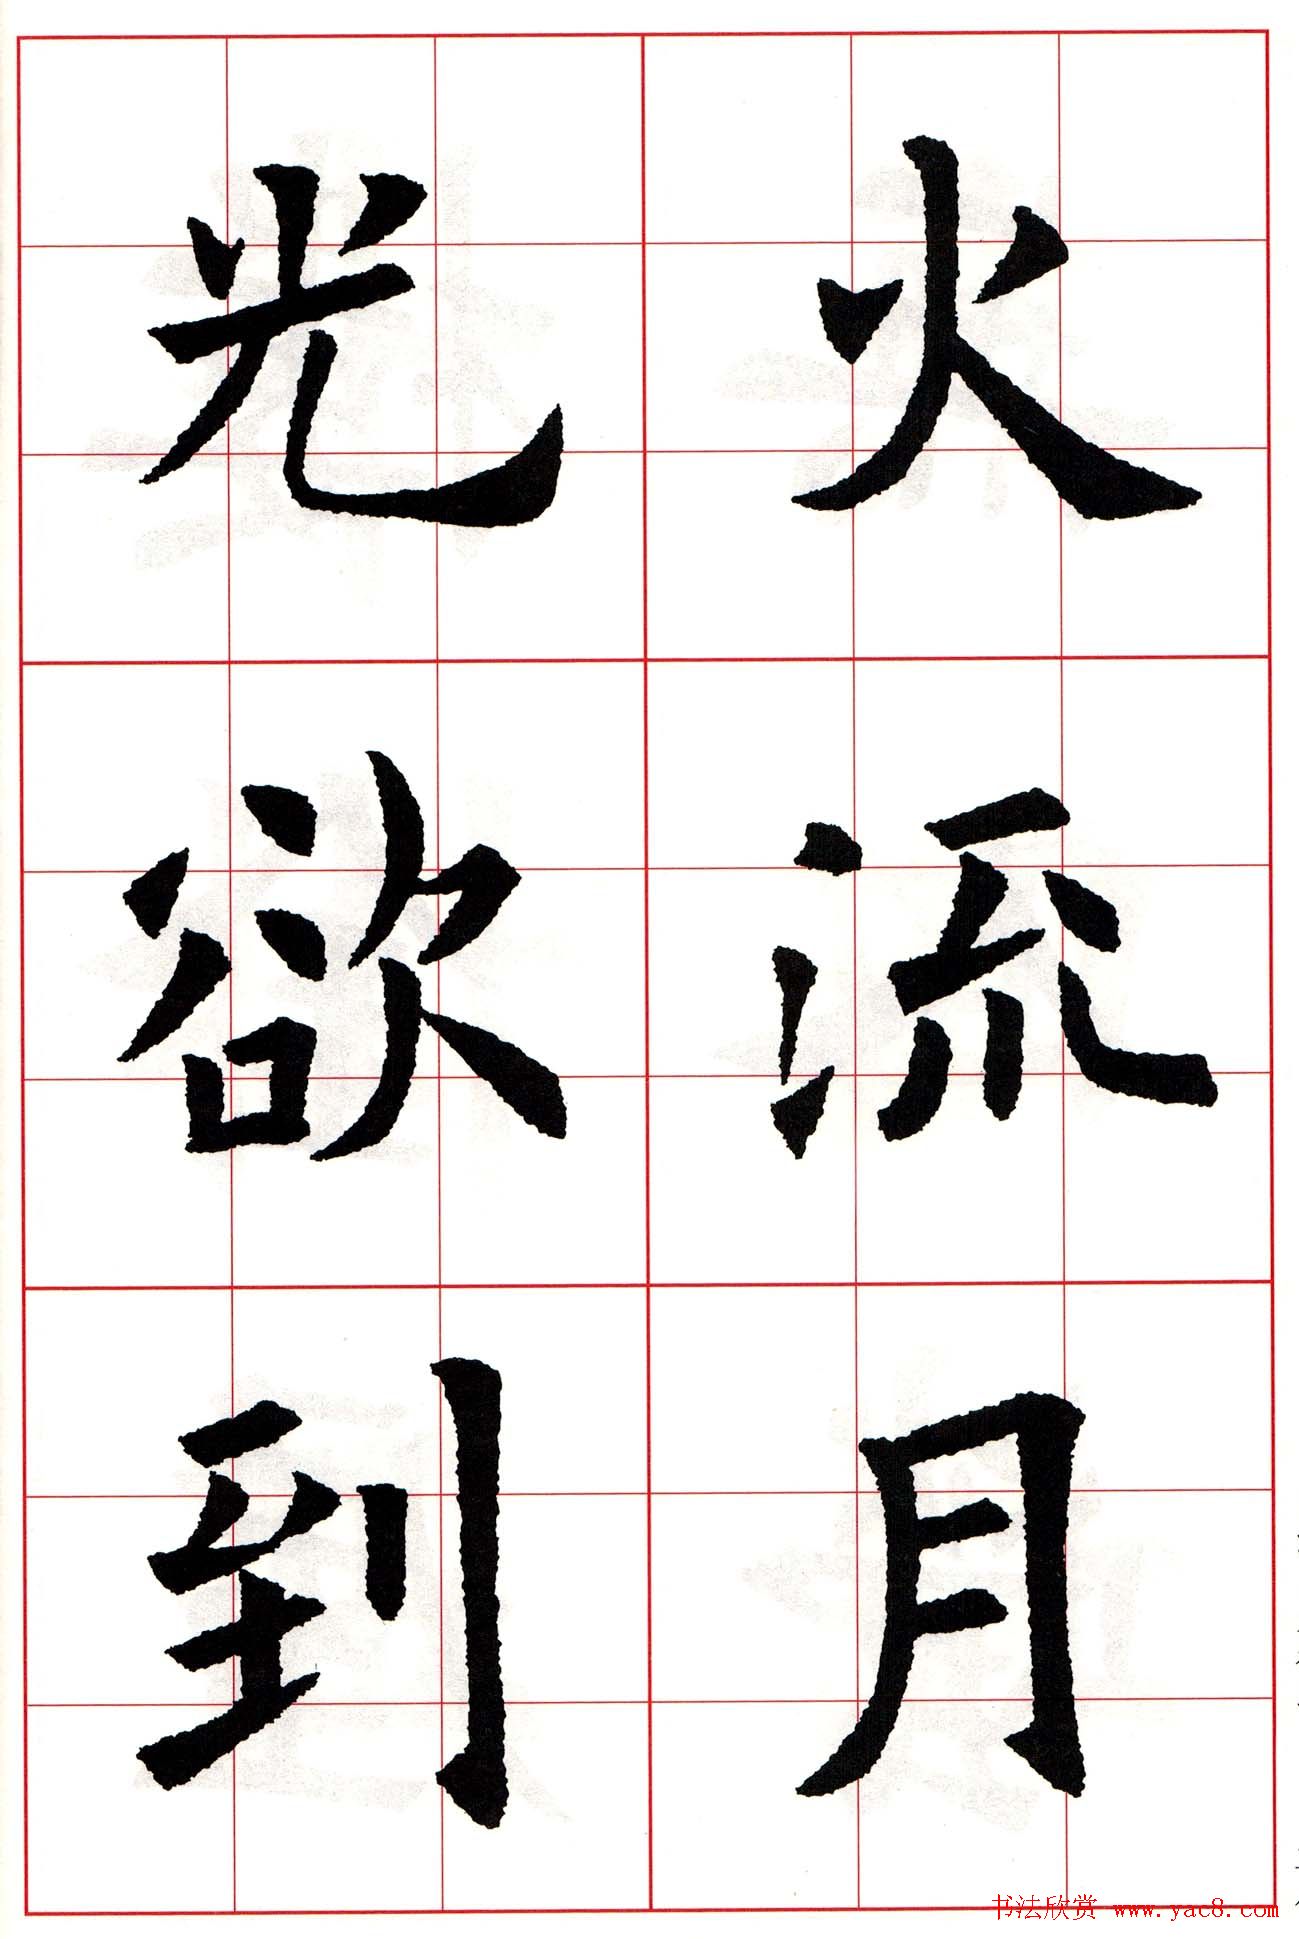 火流月
光欲到
书法欣赏 www.yac8.com